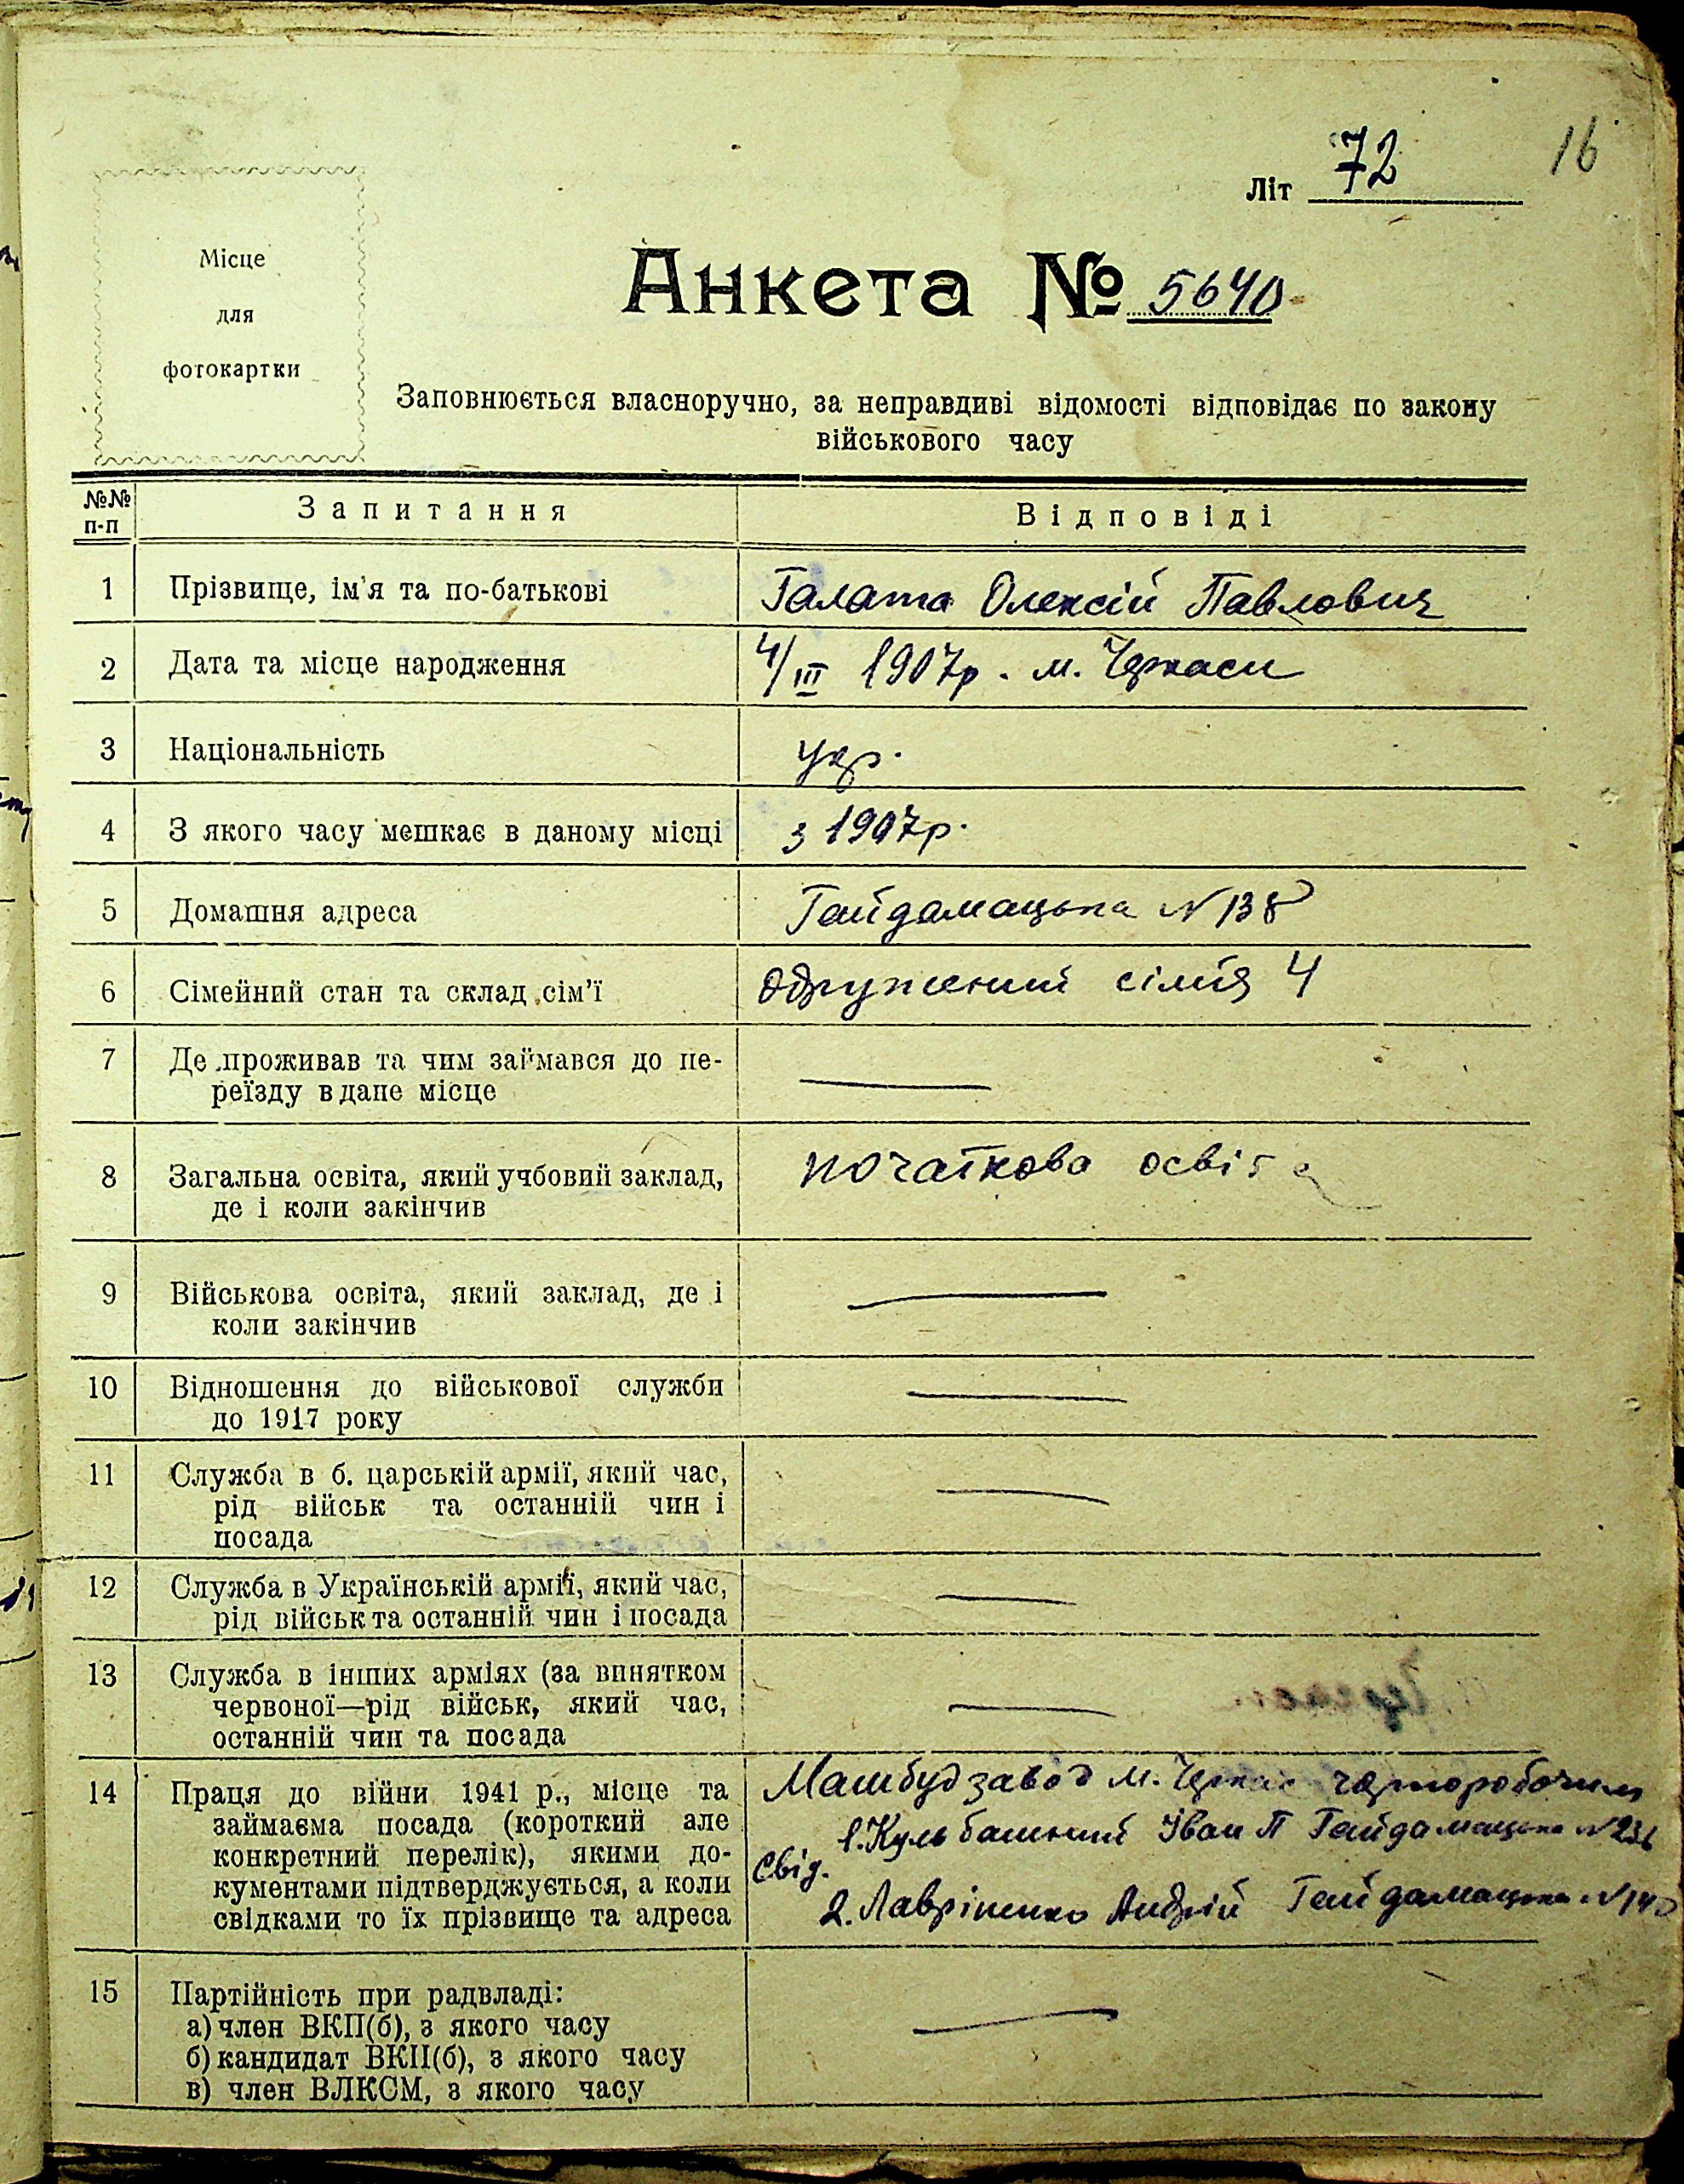 16
Літ 72
Місце
для
фотокартки
Анкета № 5640
Заповнюється власноручно, за неправдиві відомості відповідає по закону
військового часу
№№ п-п Запитання Відповіді
1 Прізвище, ім'я та по-батькові Галата Олексій Павлович
2 Дата та місце народження 4/III 1907р. м. Черкаси
3 Національність укр.
4 З якого часу мешкає в даному місці з 1907р.
5 Домашня адреса Гайдамацька N 138
6 Сімейний стан та склад сім'ї Одружений сімія 4
7 Де проживав та чим займався до пе-
реїзду в дане місце
8 Загальна освіта, який учбовий заклад, початкова освіта
де і коли закінчив
9 Військова освіта, який заклад, де і
коли закінчив
10 Відношення до військової служби
до 1917 року
11 Служба в б. царській армії, який час,
рід військ та останній чин і
посада
12 Служба в Українській армії, який час,
рід військ та останній чин і посада
13 Служба в інших арміях (за винятком
червоної—рід військ, який час,
останній чин та посада
14 Праця до війни 1941 р., місце та Машбудзавод м. Черкас чорноробочим
займаєма посада (короткий але 1. Кульбашний Іван П Гайдамацька N 236
конкретний перелік), якими до- Свід.
кументами підтверджується, а коли
свідками то їх прізвище та адреса 2. Лавріненко Андрій Гайдамацька N 140
15 Партійність при радвладі:
а) член ВКП(б), з якого часу
б) кандидат ВКП(б), з якого часу
в) член ВЛКСМ, з якого часу